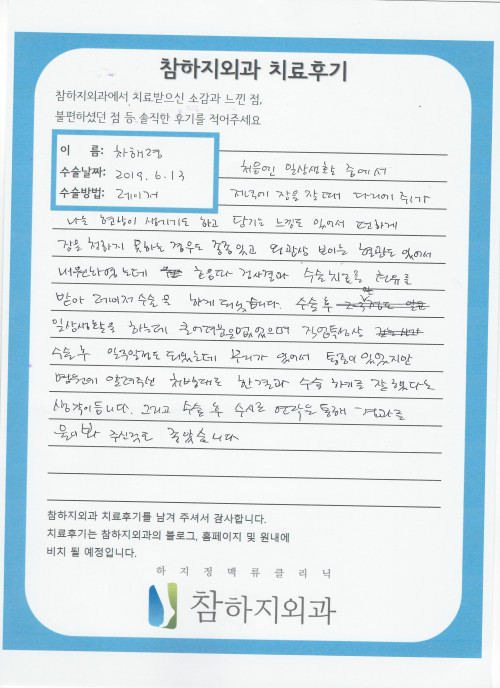 참하지외과 치료후기
참하지외과에서 치료받으신 소감과 느낀 점,
불편하셨던 점 등 솔직한 후기를 적어주세요
이 름: 차해령
수술날짜: 2019. 6. 13
수술방법: 레이저
처음엔 일상생활 중에서
저녁에 잠을 잘때 다리에 쥐가
나는 현상이 생기기도 하고 당기는 느낌도 있어서 편하게
잠을 청하지 못하는 경우도 종종 있고 외관상 보이는 혈관도 있어서
내원하였는데 검사결과 수술치료를 권유를
받아 레이저수술을 하게 되었습니다. 수술후
일상생활을 하는데 큰어려움은없었으며 직업특성상
수술후 일주일정도 되었는데 무리가 있어서 통증이 있었지만
병원에 알려주신 처방대로 한결과 수술 하기를 잘 했다는
생각이듭니다. 그리고 수술 후 수시로 연락을 통해 경과를
물어봐 주신것도 좋았습니다
참하지외과 치료후기를 남겨 주셔서 감사합니다.
치료후기는 참하지외과의 블로그, 홈페이지 및 원내에
비치 될 예정입니다.
하지정맥류클리닉
참하지외과